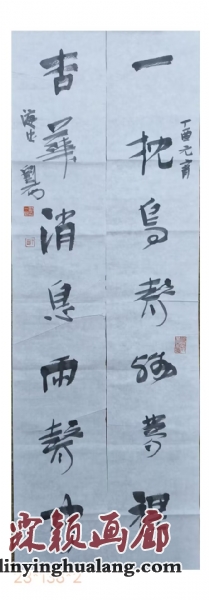 丁酉元宵
一枕鳥聲殘夢裡
杏華消息雨聲中
霖颖画廊
linyinghualang.com
23-153-2